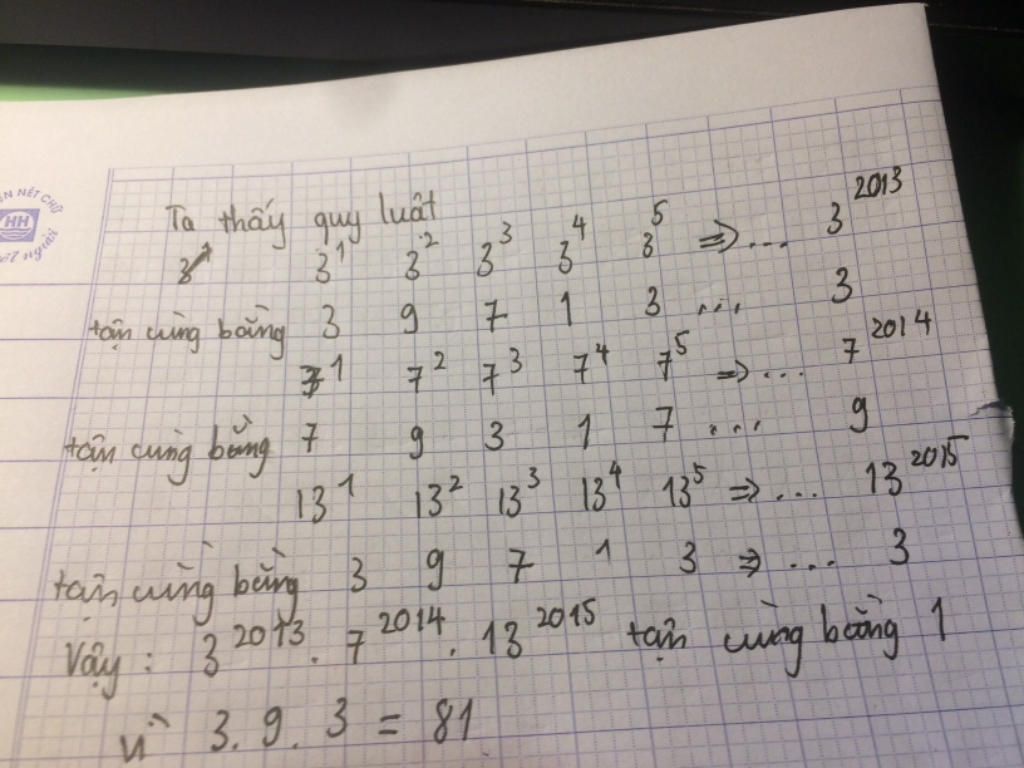 Ta thấy quy luật
3¹ 3¹ 3² 3³ 3⁴ 3⁵ => ... 3²⁰¹³
tận cùng bằng 3 9 7 1 3 ... 3
7¹ 7² 7³ 7⁴ 7⁵ => ... 7²⁰¹⁴
tận cùng bằng 7 9 3 1 7 ... 9
13¹ 13² 13³ 13⁴ 13⁵ => ... 13²⁰¹⁵
tận cùng bằng 3 9 7 1 3 => ... 3
Vậy : 3²⁰¹³ . 7²⁰¹⁴ . 13²⁰¹⁵ tận cùng bằng 1
vì 3 . 9 . 3 = 81
NÉT CHỮ
HH